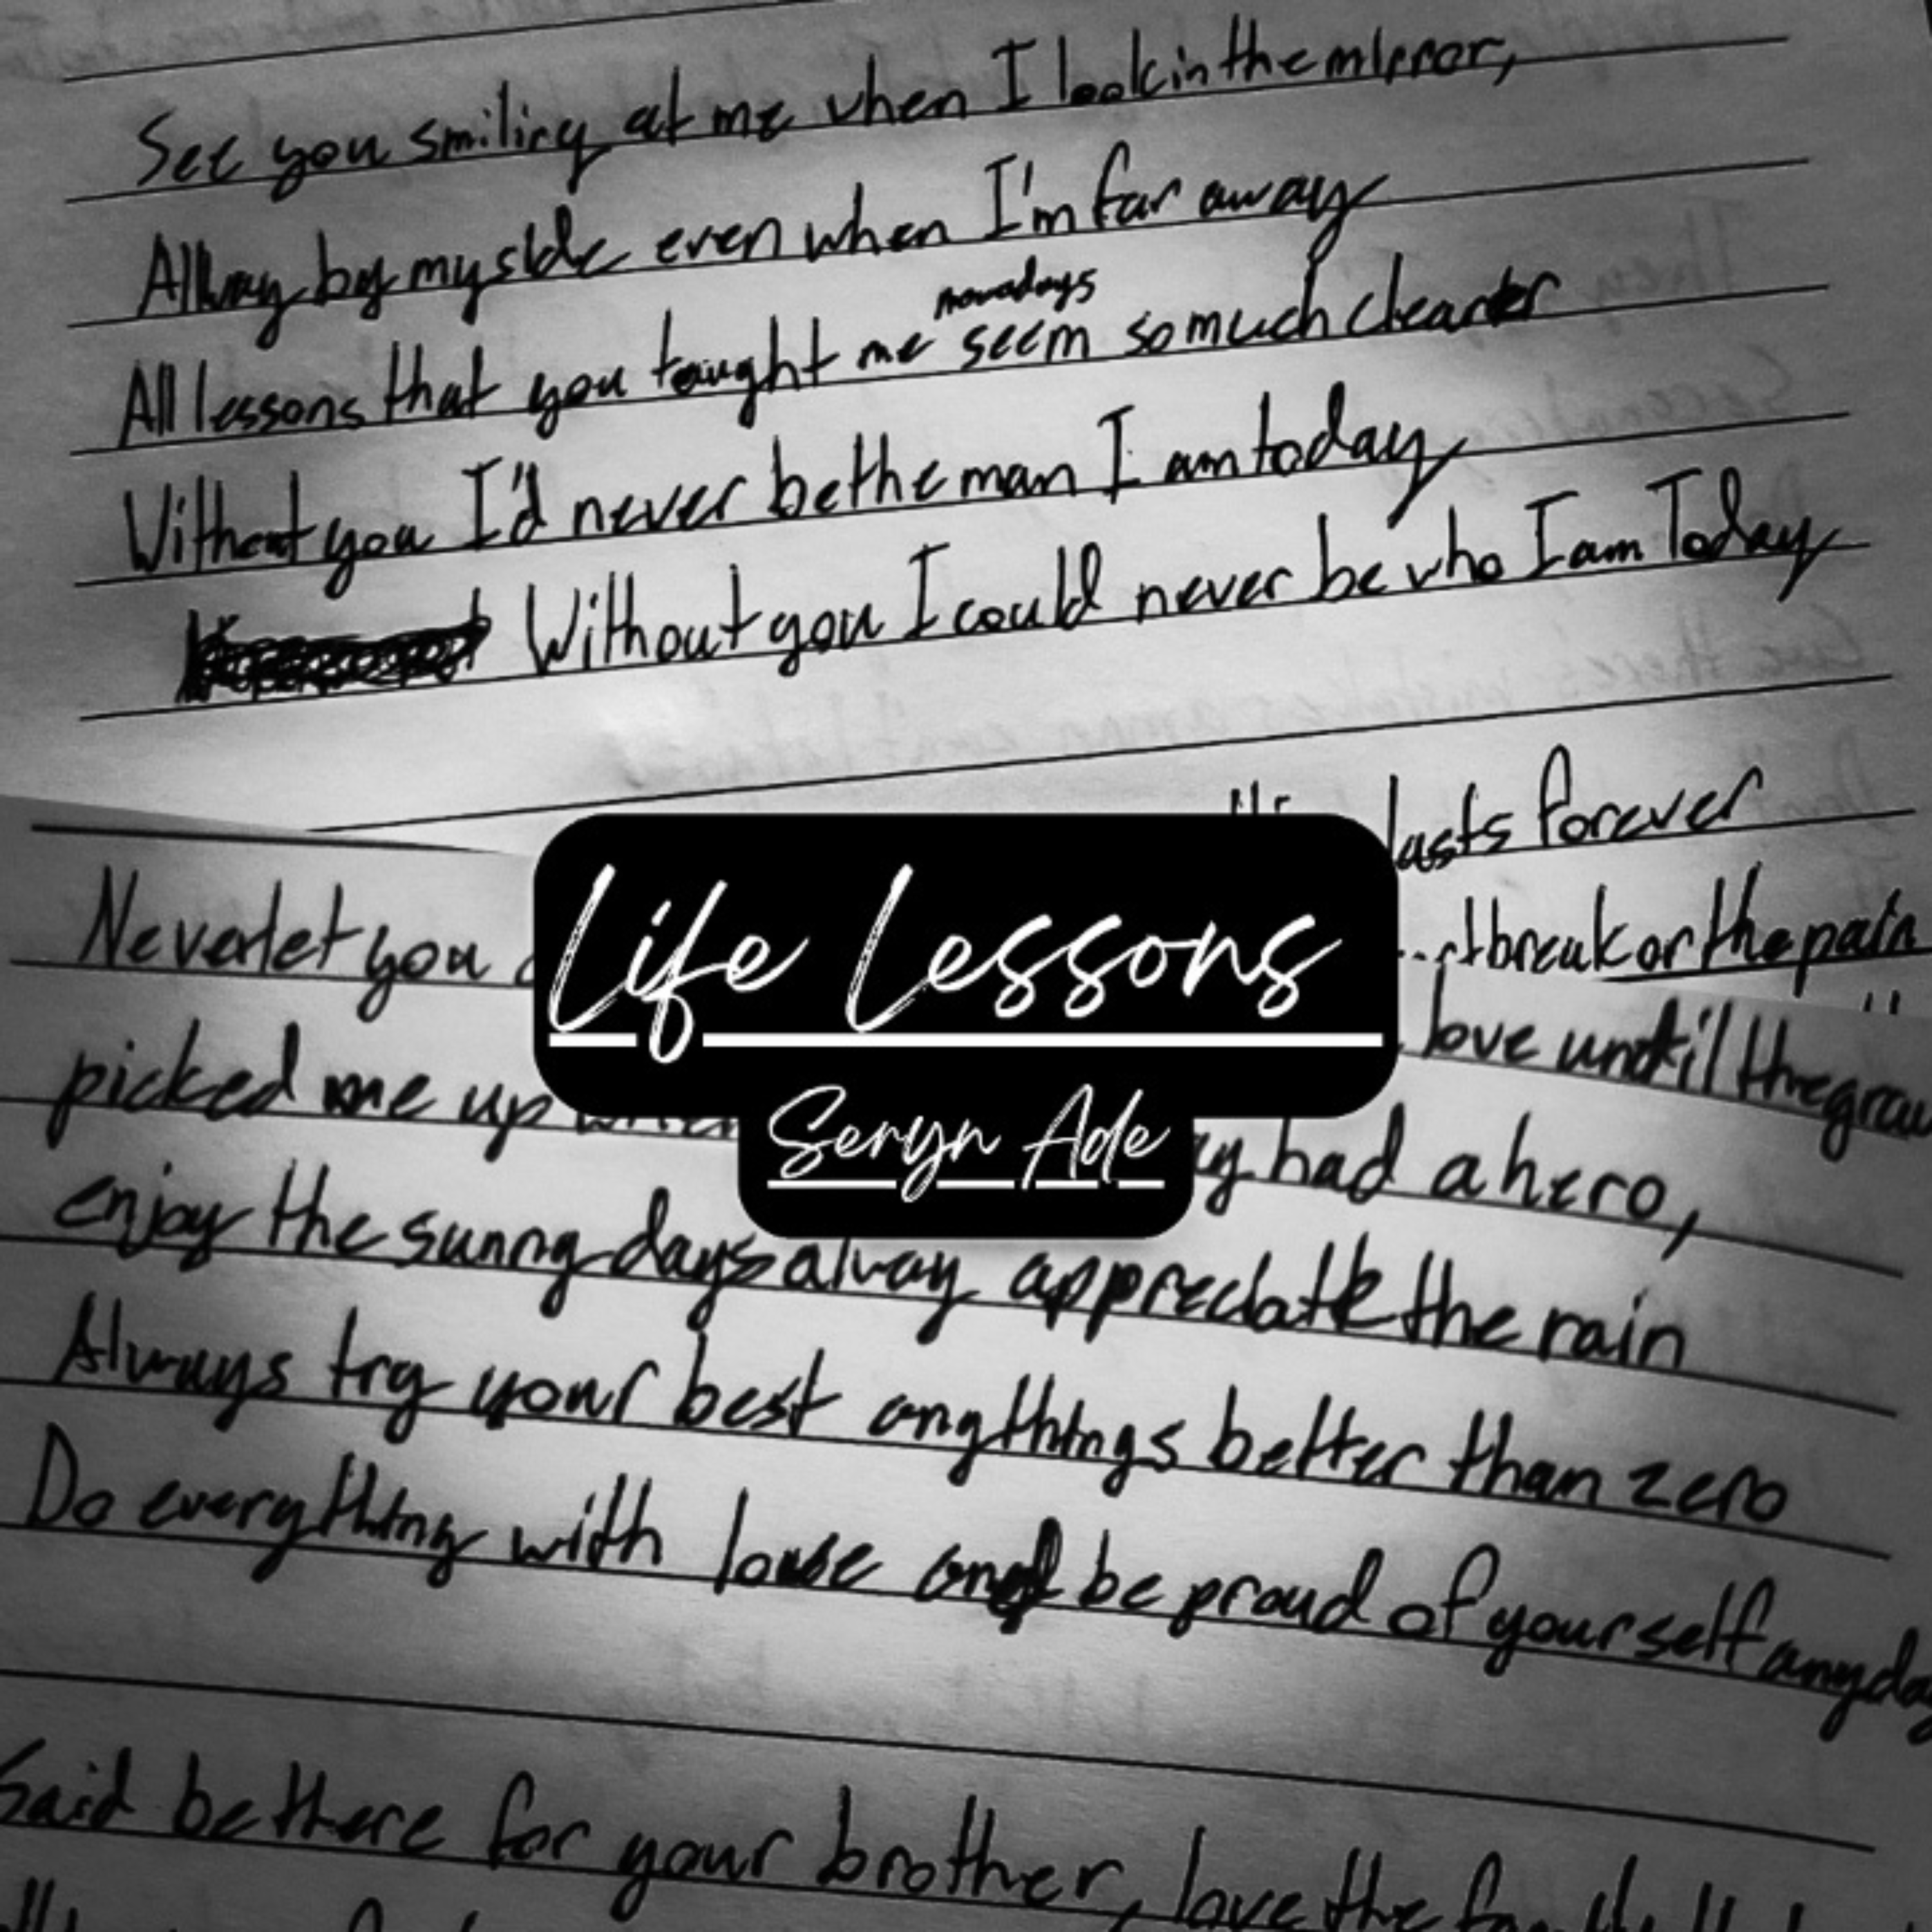 See you smiling at me when I look in the mirror,
Allway by my side even when I'm far away
nowadays
All lessons that you taught me seem so much clearer
Without you I'd never be the man I am today
Without you I could never be who I am Today
lasts forever
Never let you
Life Lessons
break or the pain
love until the
picked me up
Seryn Ade
had a hero,
enjoy the sunny days alway appreciate the rain
Always try your best anythings better than zero
Do everything with love and be proud of yourself
Said be there for your brother, love the